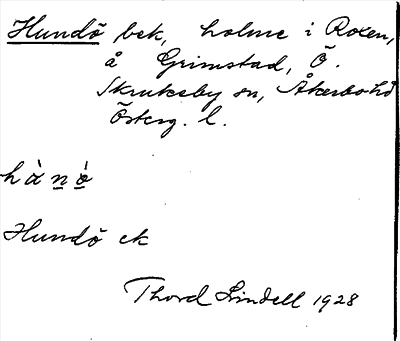 Hundö bek, holme i Roxen,
å Grimstad, Ö.
Skrukeby sn, Åkerbo hd
Österg. l.
hànò
Hundö ek
Thord Lindell 1928